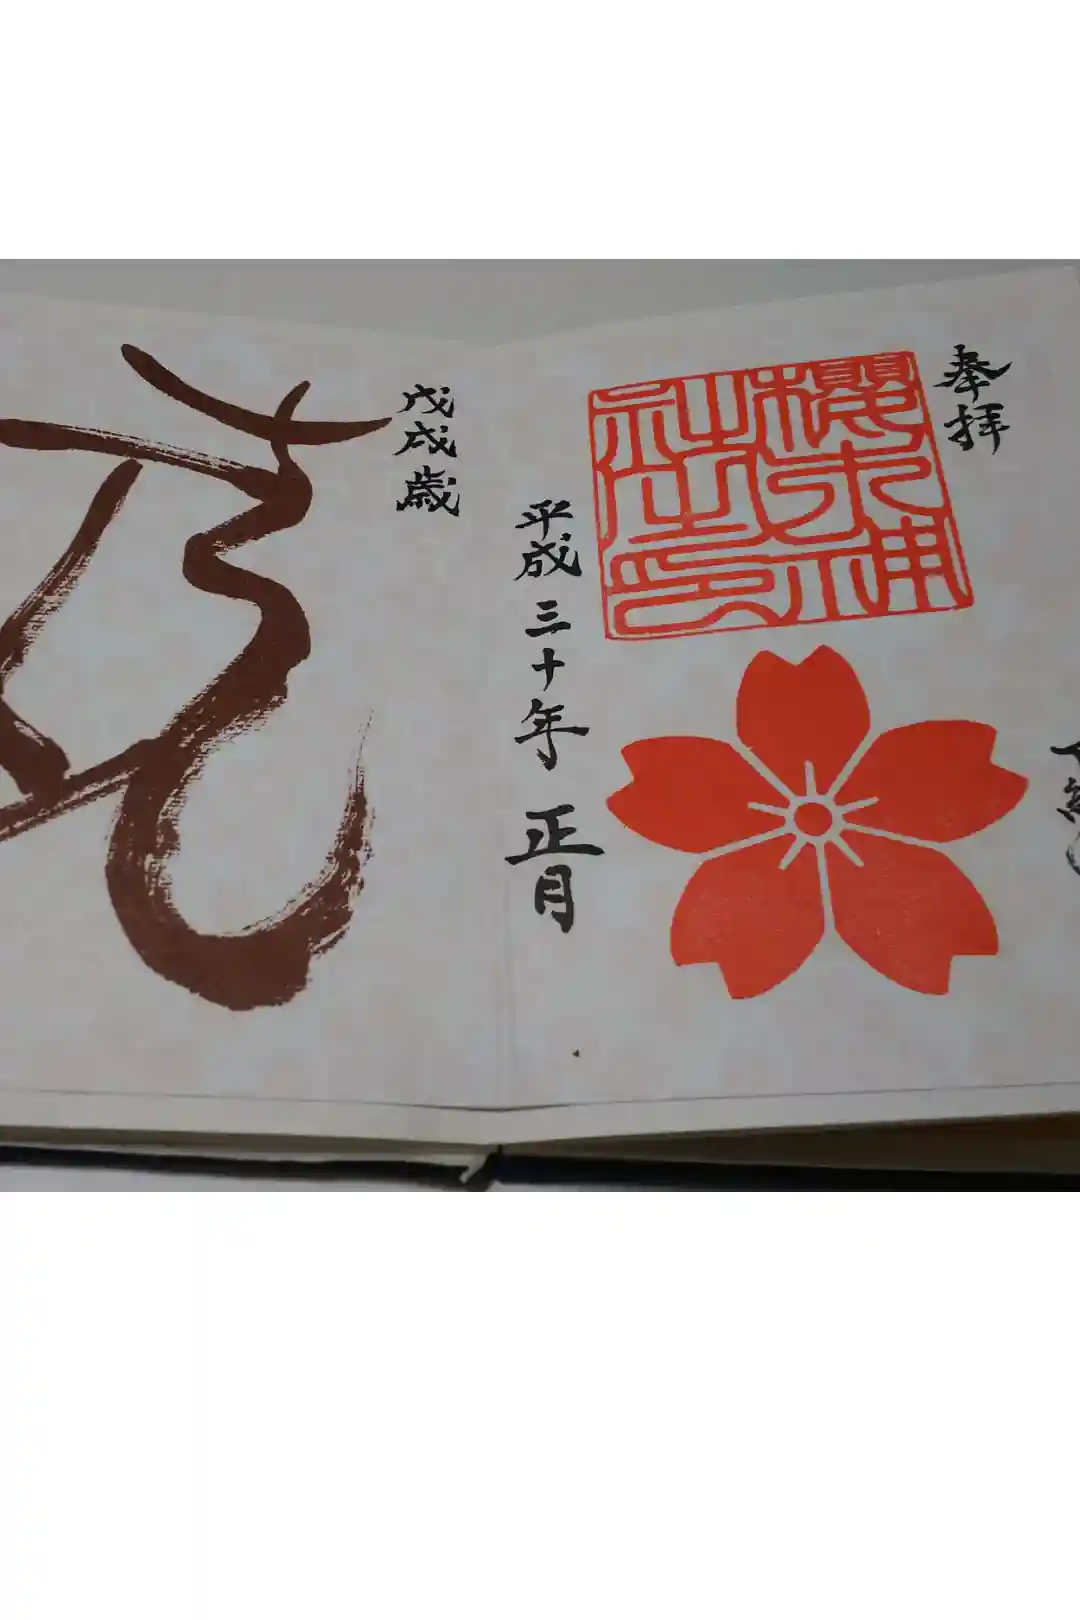 奉拝
櫻木神
社之印
平成三十年 正月
戊戌歳